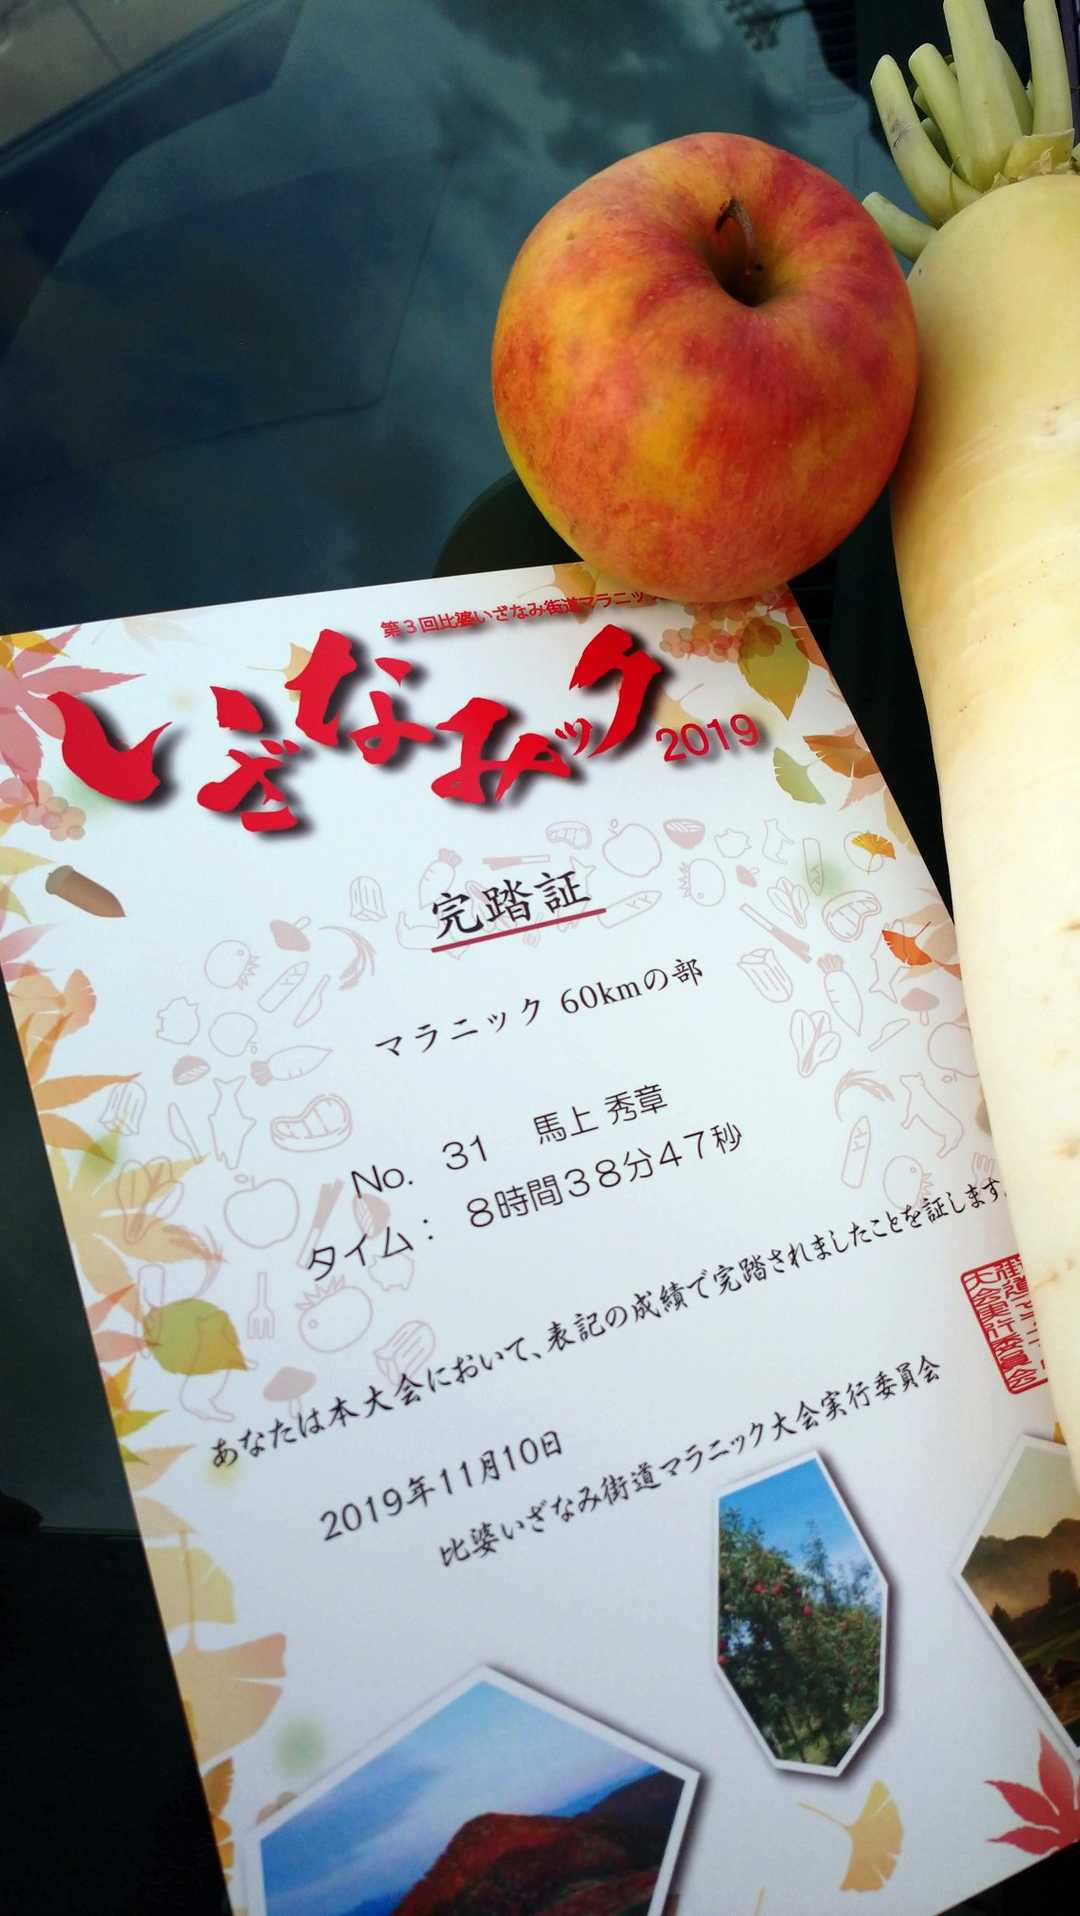 第3回比婆いざなみ街道マラニック
いざなみック 2019
完踏証
マラニック 60kmの部
No. 31 馬上 秀章
タイム: 8時間38分47秒
あなたは本大会において、表記の成績で完踏されましたことを証します。
2019年11月10日
比婆いざなみ街道マラニック大会実行委員会
大会実行委員会